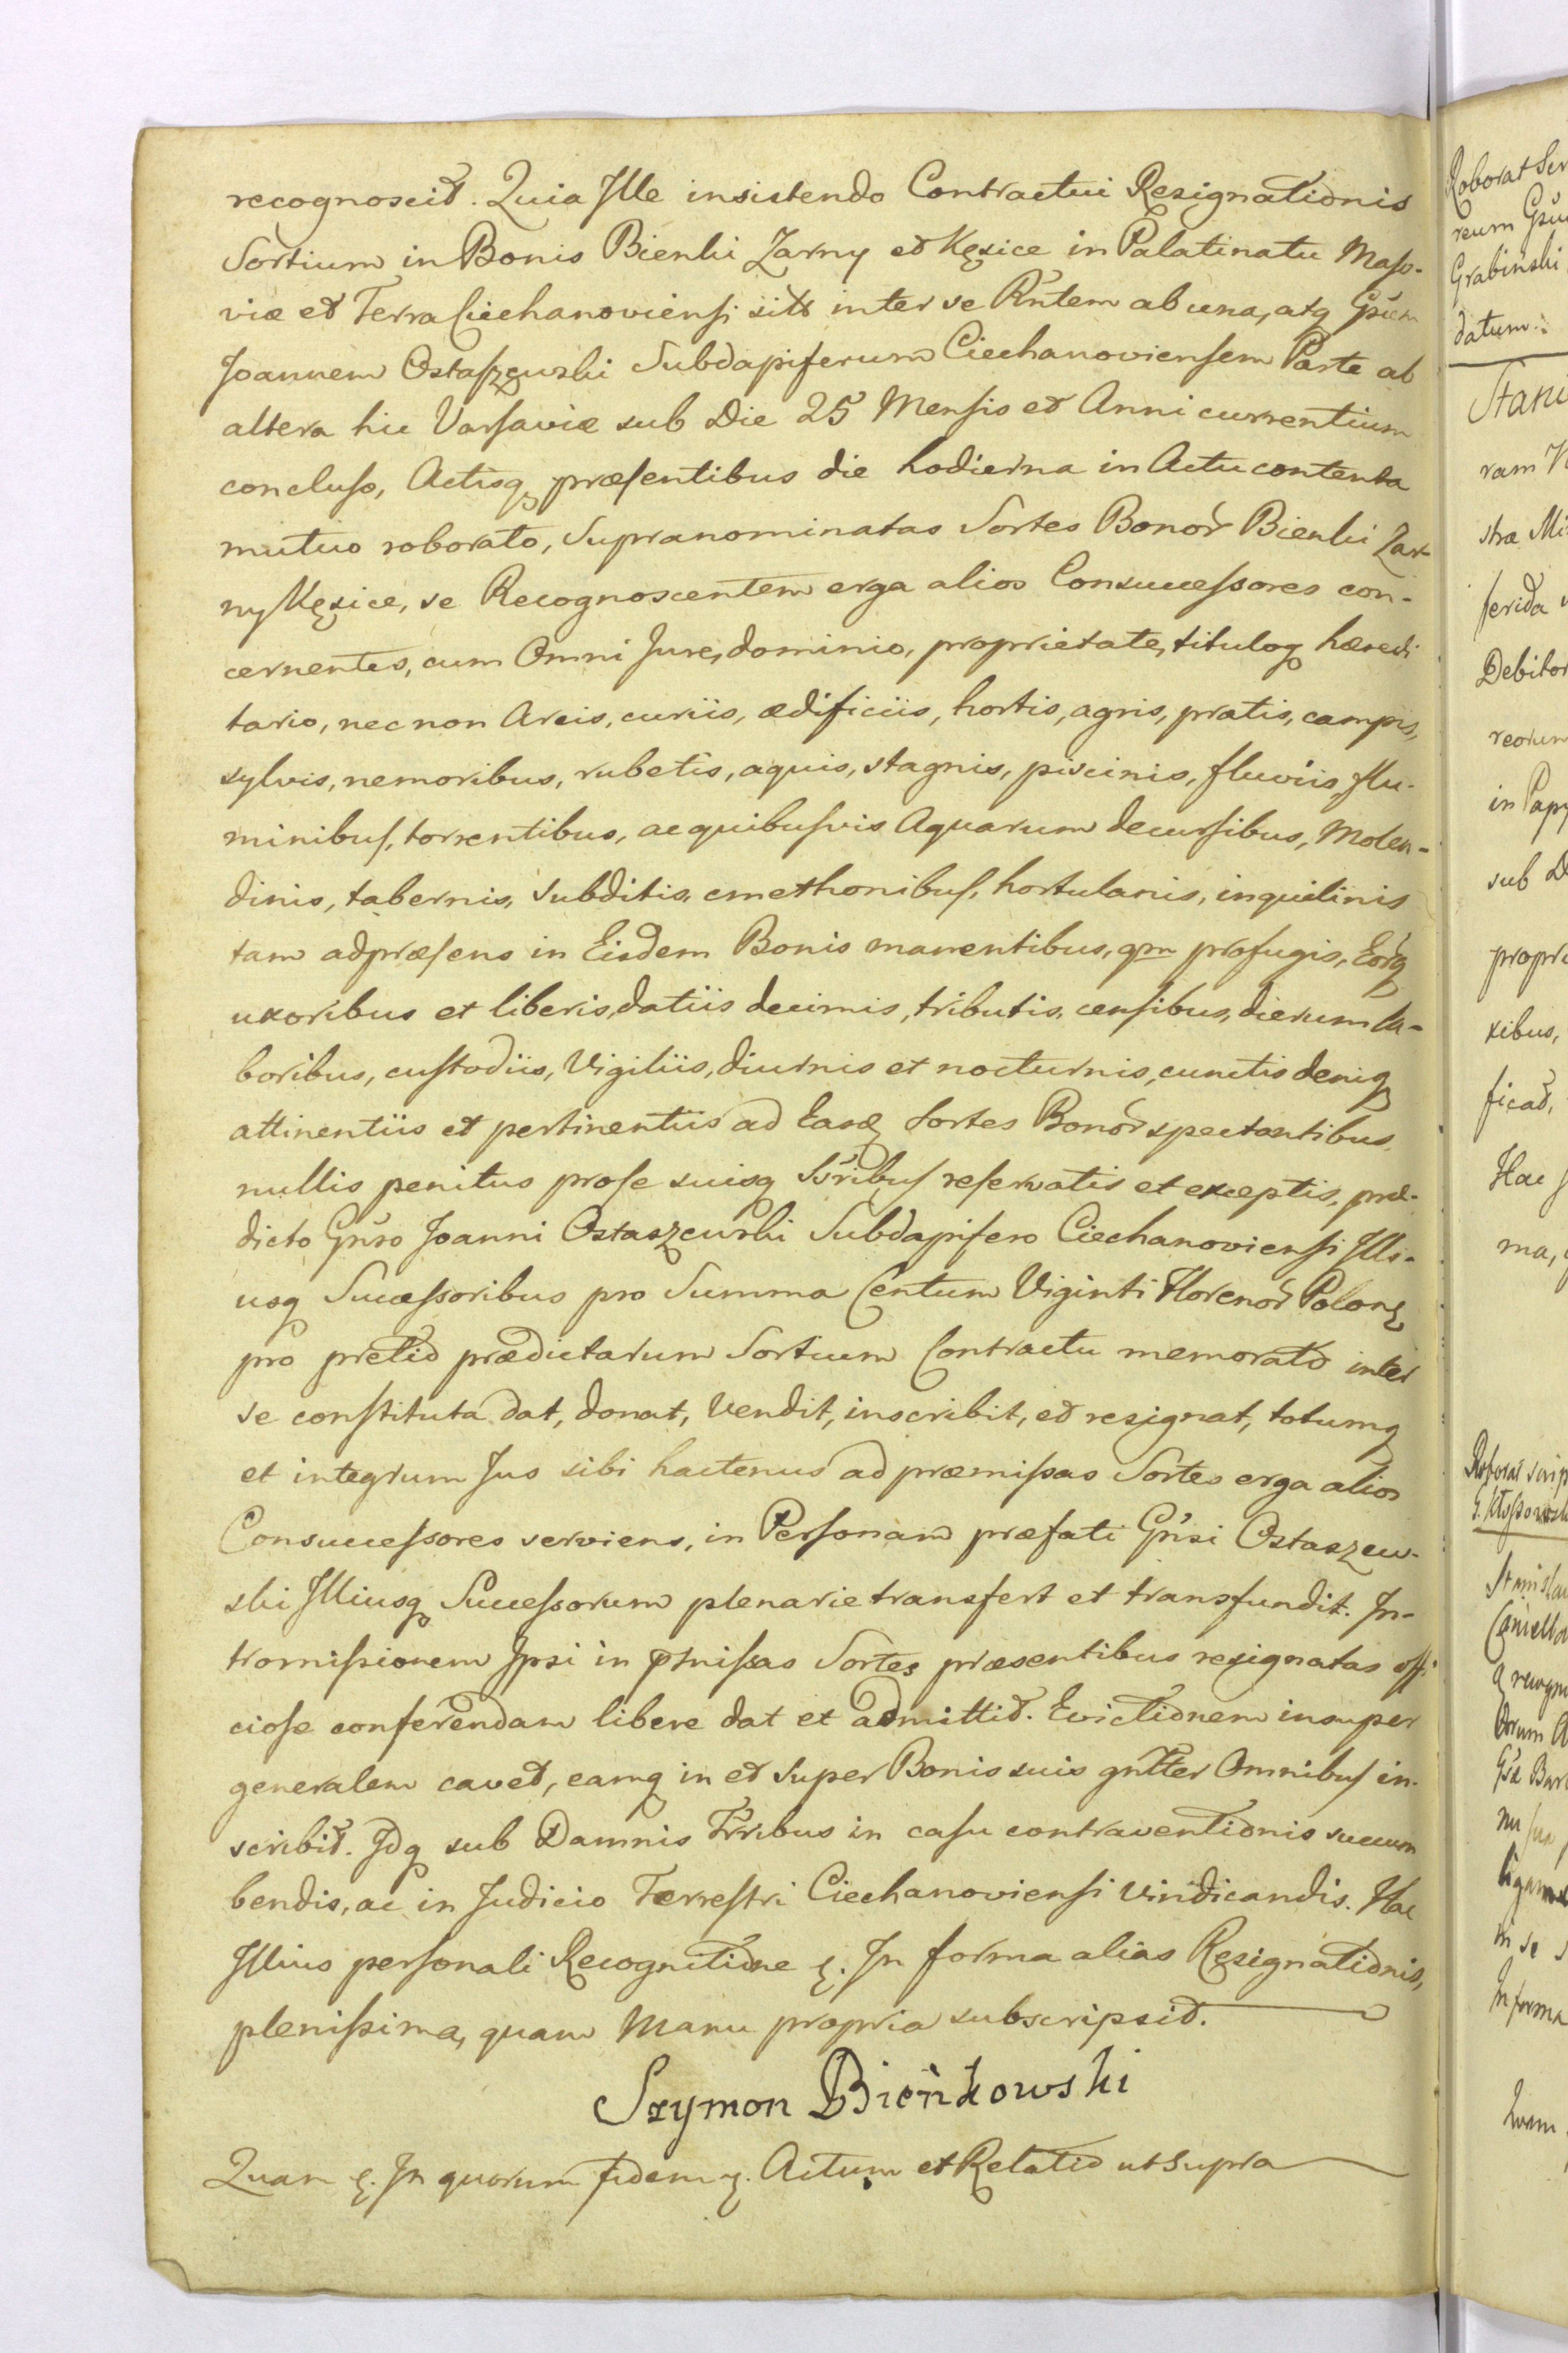 recognoscit. Quia Ille insistendo Contractui Resignationis
Sortium in Bonis Bieńki Zarny et Kęsice in Palatinatu Maso-
viæ et Terra Ciechanoviensi sitt inter se Rñtem ab una, atq Gsum
Joannem Ostaszewski Subdapiferum Ciechanoviensem Parte ab
altera hic Varsaviæ sub Die 25 Mensis et Anni currentium
concluso, Actisq præsentibus die hodierna in Actu contenta
mutuo roborato, Supranominatas Sortes Bonor Bieńki Zar-
ny Kęsice, se Recognoscentem erga alios Consuccessores con-
cernentes, cum Omni Jure, dominio, proprietate, tituloq hæredi
tario, nec non Areis, curiis, ædificiis, hortis, agris, pratis, campis,
sylvis, nemoribus, rubetis, aquis, stagnis, piscinis, fluviis, flu-
minibus, torrentibus, ac quibusvis Aquarum decursibus, Molen-
dinis, tabernis, Subditis, cmethonibus, hortulanis, inquilinis
tam adpræsens in Eisdem Bonis manentibus, qm profugis, Eorq
uxoribus et liberis, datiis decimis, tributis, censibus, dierum la-
boribus, custodiis, Vigiliis, diurnis et nocturnis, cunctis deniq
attinentiis et pertinentiis ad Easd Sortes Bonor spectantibus,
nullis penitus pro se suisq Ssribus reservatis et exceptis, præ-
dicto Gñso Joanni Ostaszewski Subdapifero Ciechanoviensi Illi-
usq Successoribus pro Summa Centum Viginti Florenor Polon
pro pretio prædictarum Sortium Contractu memorato inter
se constituta dat, donat, Vendit, inscribit, et resignat, totumq
et integrum Jus sibi hactenus ad præmissas Sortes erga alios
Consuccessores serviens, in Personam præfati Gñsi Ostaszew-
ski Illiusq Successorum plenarie transfert et transfundit. In-
tromissionem Ipsi in pmissas Sortes præsentibus resignatas offi
ciose conferendam libere dat et admittit. Evictionem insuper
generalem cavet, eamq in et super Bonis suis gnlter Omnibus in-
scribit. Idq sub Damnis Trribus in casu contraventionis succum
bendis, ac in Judicio Terrestri Ciechanoviensi Vindicandis. Hac
Illius personali Recognitione &. In forma alias Resignationis,
plenissima, quam Manu propria subscripsit.
Szymon Bieńkowski
Quam &. In quorum fidem &. Actum et Relatio ut supra
Roborat
reum
Grabinski
datum
ram
stræ
ferida
Debitor
reorum
in Papy
sub
propri
xibus,
ficat,
Hac
ma,
in se
In forma